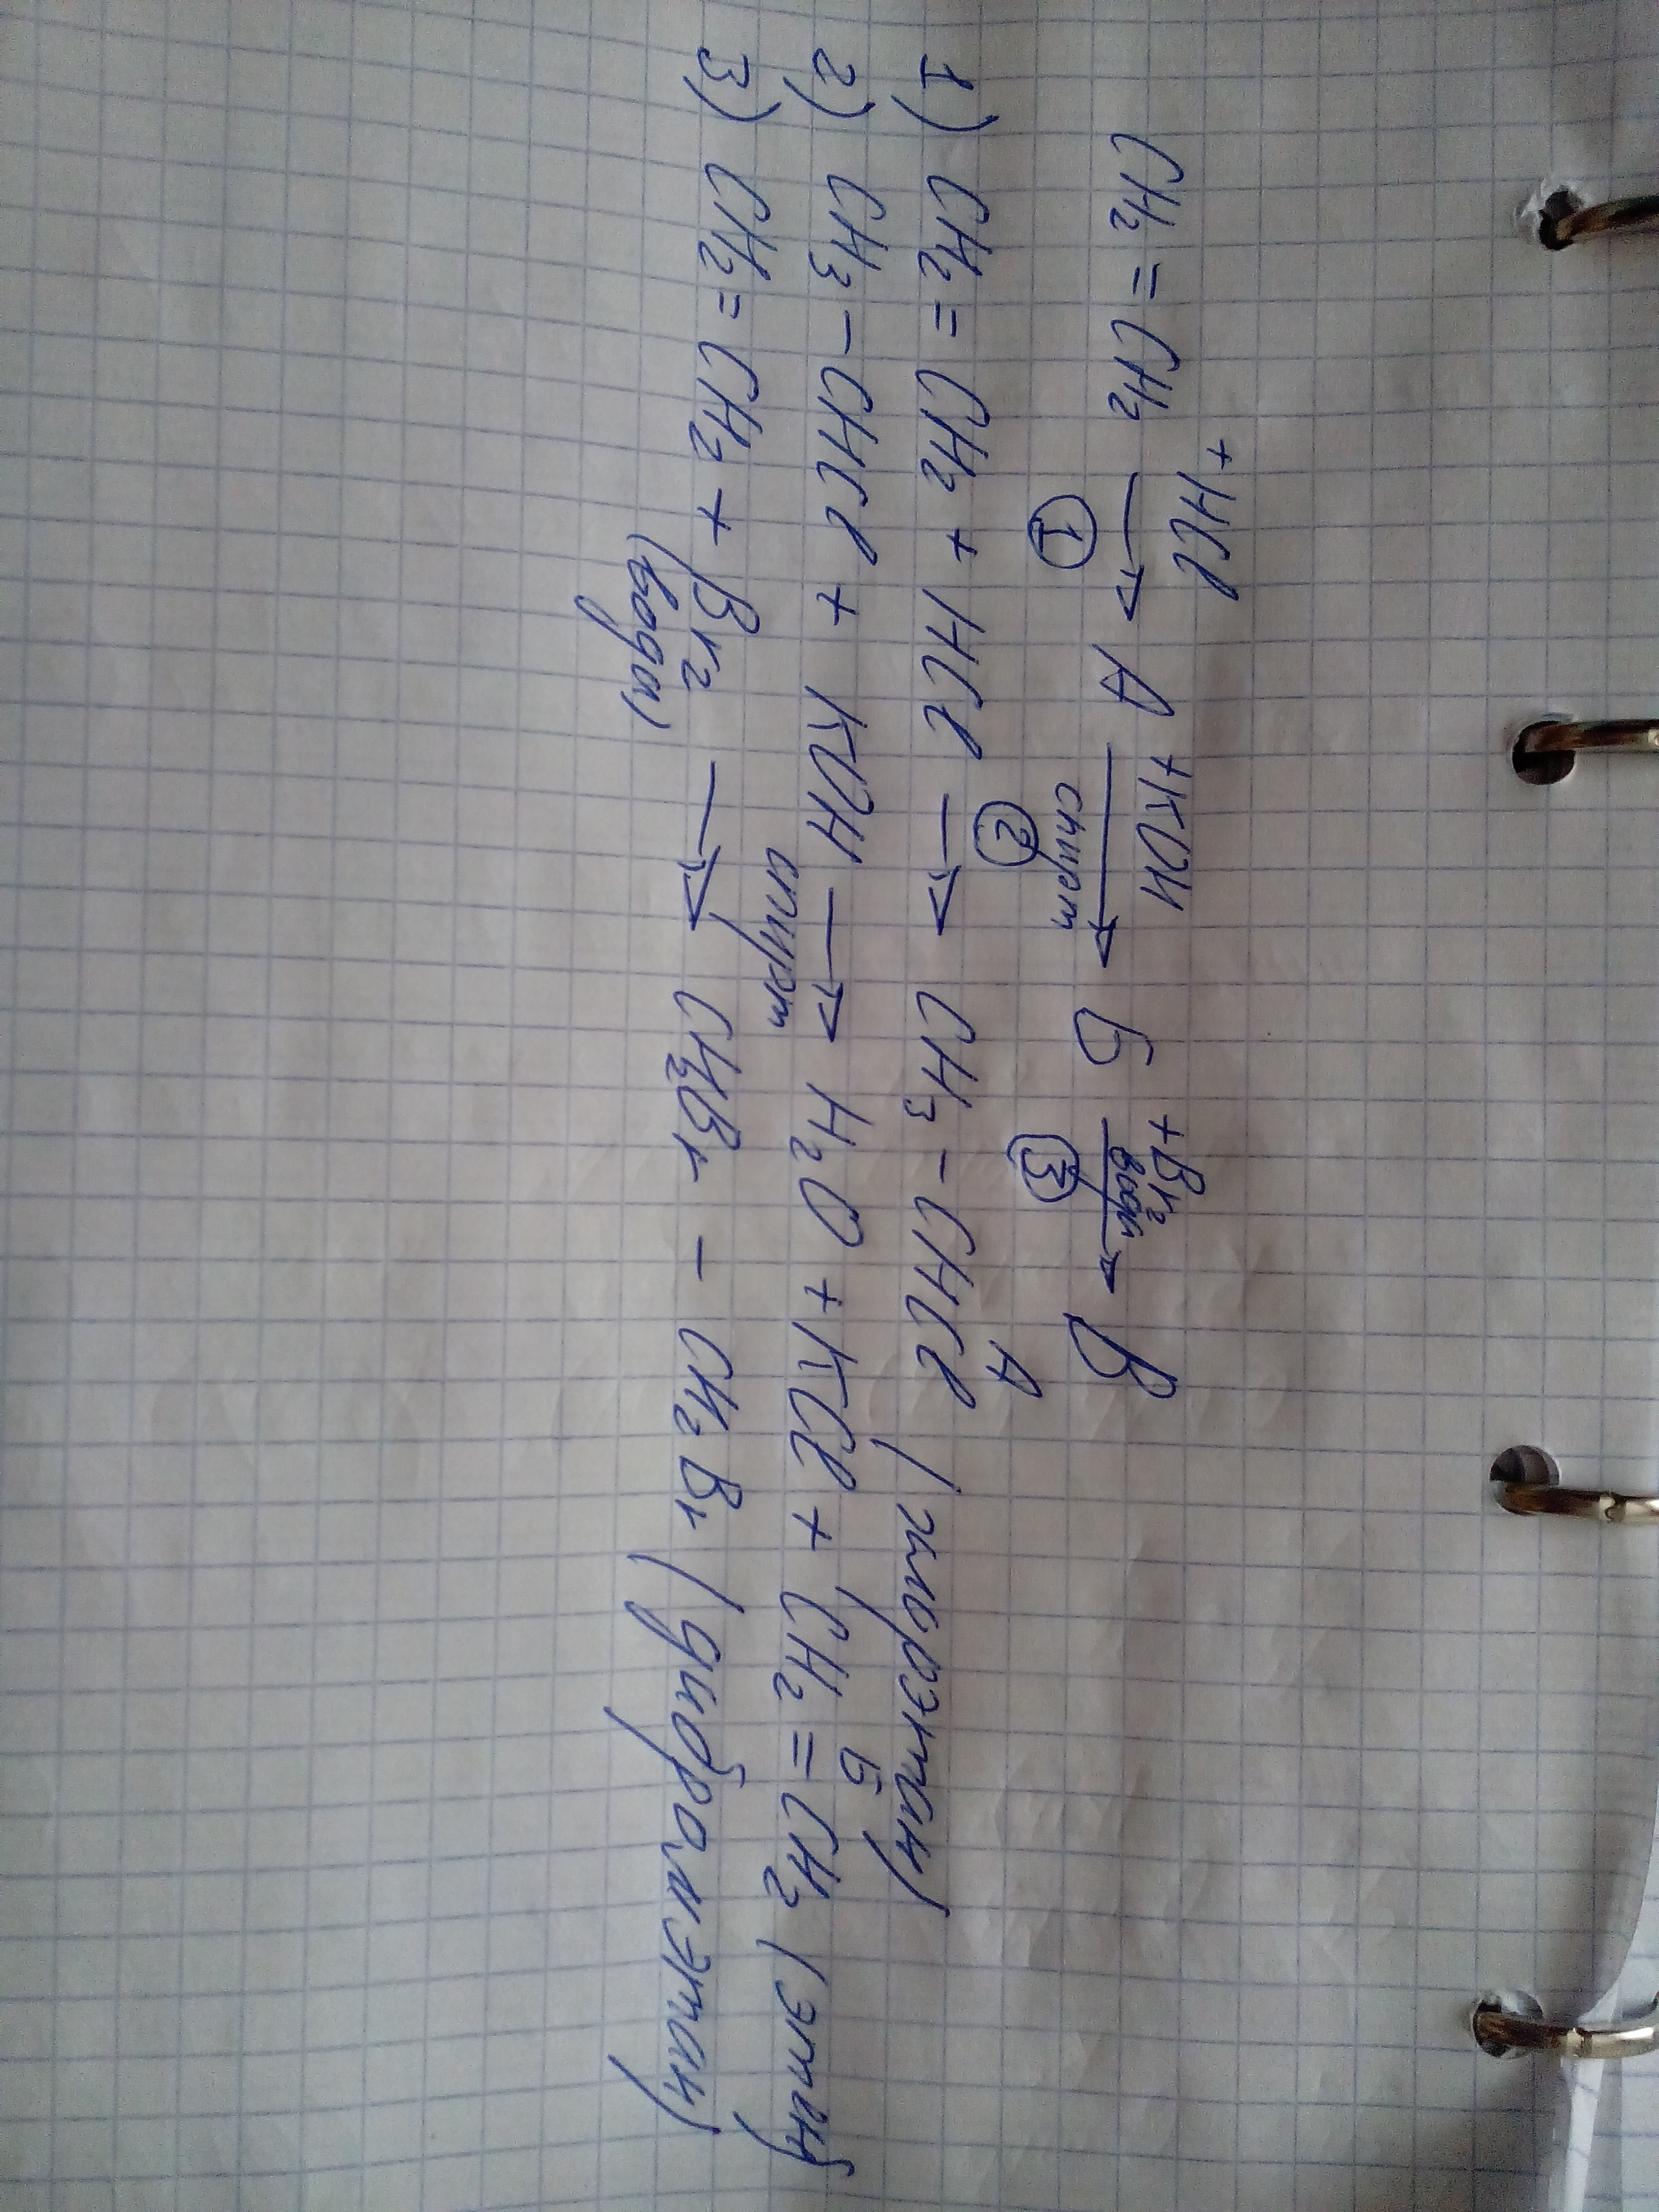 CH₂ = CH₂ +HCl → ① A +KOH спирт → ② Б +Br₂ вода → ③ В
1) CH₂ = CH₂ + HCl → CH₃ - CHCl A (хлорэтан)
2) CH₃ - CHCl + KOH спирт → H₂O + KCl + CH₂ = CH₂ Б (этен)
3) CH₂ = CH₂ + Br₂ (вода) → CH₂Br - CH₂Br (дибромэтан)